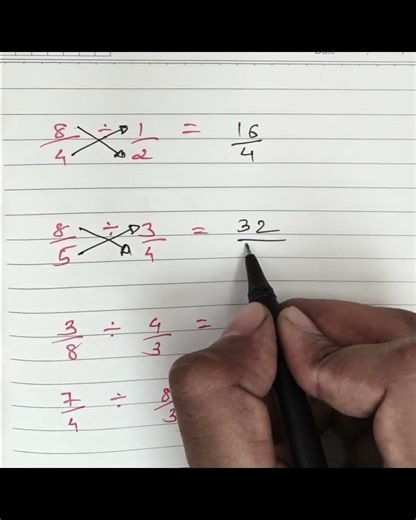 Date
8/4 ÷ 1/2 = 16/4
8/5 ÷ 3/4 = 32/
3/8 ÷ 4/3 =
7/4 ÷ 8/3